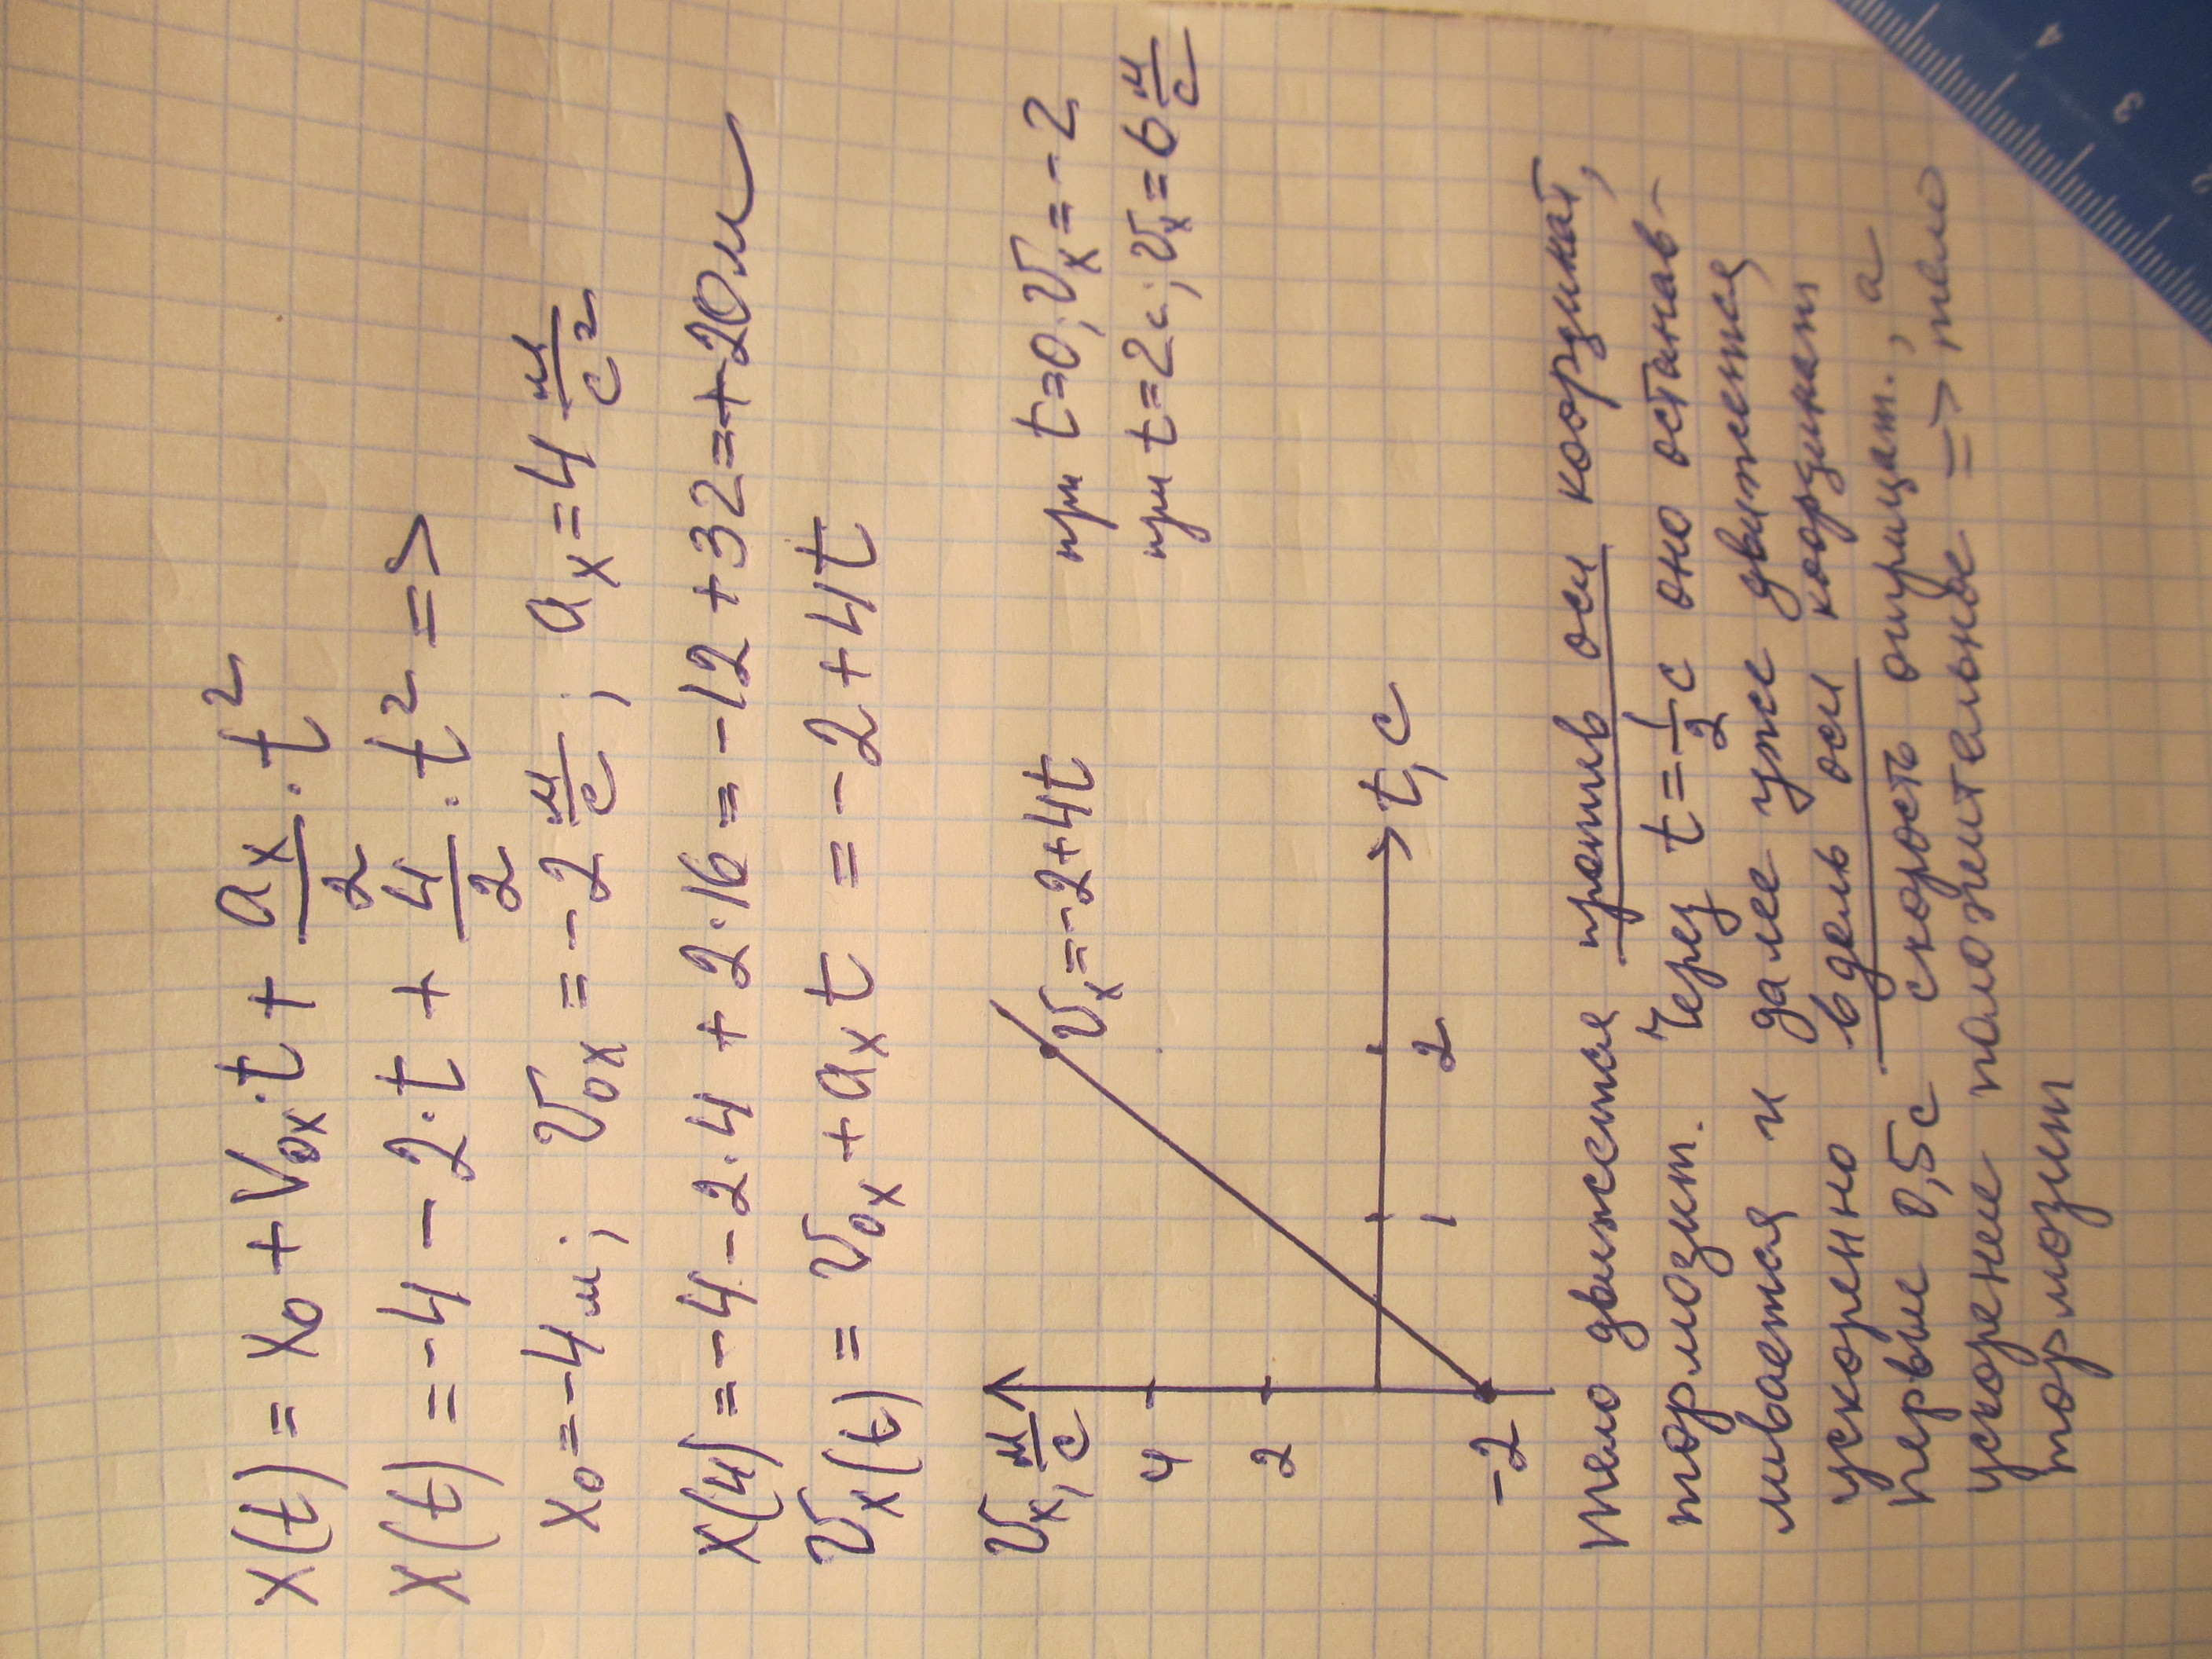 x(t) = x₀ + V₀ₓ·t + aₓ/2 · t²
x(t) = -4 - 2·t + 4/2 · t² =>
x₀ = -4м; υ₀ₓ = -2 м/с; aₓ = 4 м/с²
x(4) = -4 - 2·4 + 2·16 = -12 + 32 = +20м
υₓ(t) = υ₀ₓ + aₓt = -2 + 4t
υₓ, м/с
υₓ = -2 + 4t
при t=0; υₓ = -2
при t=2с; υₓ = 6 м/с
4
2
-2
1
2
t, с
тело движется против оси координат,
тормозит. Через t = 1/2 с оно останав-
ливается и далее уже движется
ускоренно вдель оси координат
первые 0,5с скорость отрицат., а
ускорение положительное => тело
тормозит
4
3
2